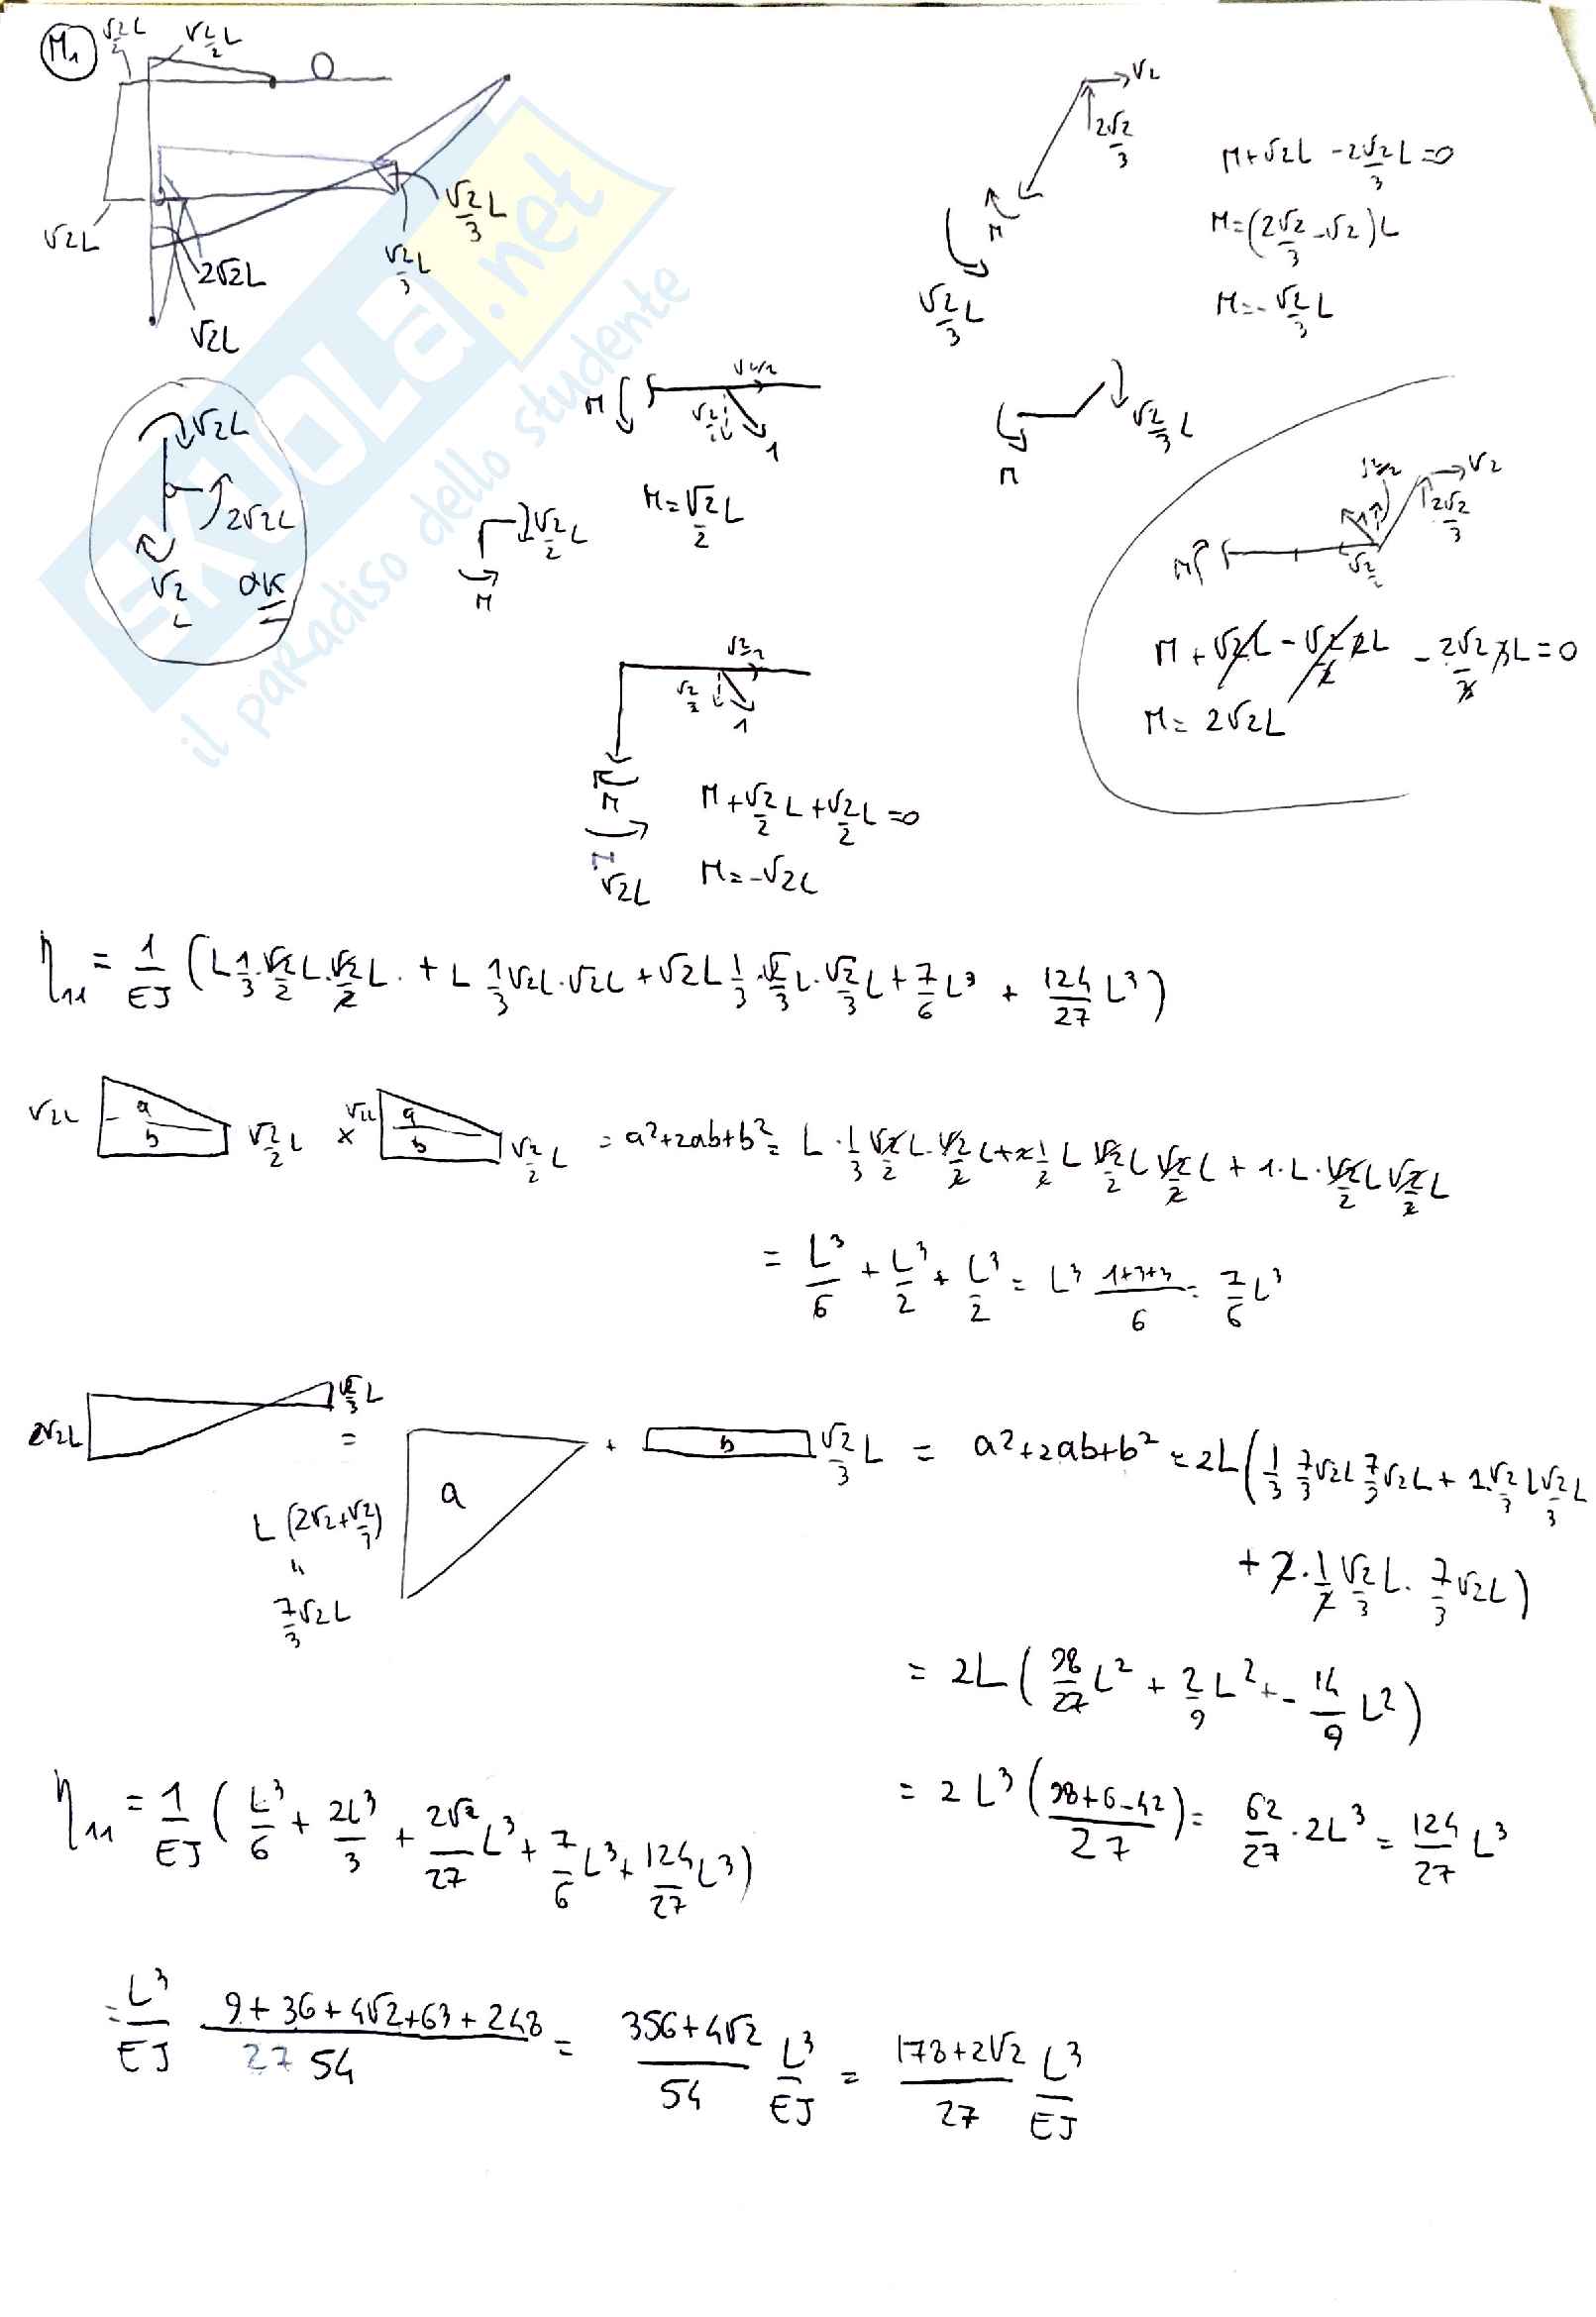 M₁
√2/2 L
√2/2 L
0
√2 L
2√2 L
√2 L
√2/3 L
√2/3 L
√2
2√2/3
M
√2/3 L
M+√2L - 2√2/3 L = 0
M = (2√2/3 - √2) L
M = - √2/3 L
√2L
2√2L
√2 L
OK
M
√2/2
√2/2
1
M = √2/2 L
√2/2 L
M
√2/3 L
M
√2/2
√2
2√2/3
1
√2/2
M
M + √2L - √2/2 2L - 2√2/3 3L = 0
M = 2√2L
√2/2
√2/2
1
M
√2L
M + √2/2 L + √2/2 L = 0
M = -√2L
η₁₁ = 1/EJ (L 1/3 · √2/2 L · √2/2 L + L 1/3 √2L · √2L + √2L 1/3 · √2/3 L · √2/3 L + 7/6 L³ + 124/27 L³)
√2L a b √2/2 L × √2L a b √2/2 L = a²+2ab+b² = L · 1/3 √2/2 L · √2/2 L + 2 1/2 L √2/2 L √2/2 L + 1 · L · √2/2 L √2/2 L
= L³/6 + L³/2 + L³/2 = L³ (1+3+3)/6 = 7/6 L³
2√2L √2/3 L = a + b √2/3 L = a²+2ab+b² = 2L (1/3 7/3 √2L 7/3 √2L + 1 · √2/3 L √2/3 L
L (2√2+√2/3)
"
7/3 √2L
+ 2 · 1/2 √2/3 L · 7/3 √2L)
= 2L (98/27 L² + 2/9 L² + - 14/9 L²)
= 2L³ ((98+6-42)/27) = 62/27 · 2L³ = 124/27 L³
η₁₁ = 1/EJ (L³/6 + 2L³/3 + 2√2/27 L³ + 7/6 L³ + 124/27 L³)
= L³/EJ (9+36+4√2+63+248)/27 54 = (356+4√2)/54 L³/EJ = (178+2√2)/27 L³/EJ
SKUOLA.net
il paradiso dello studente